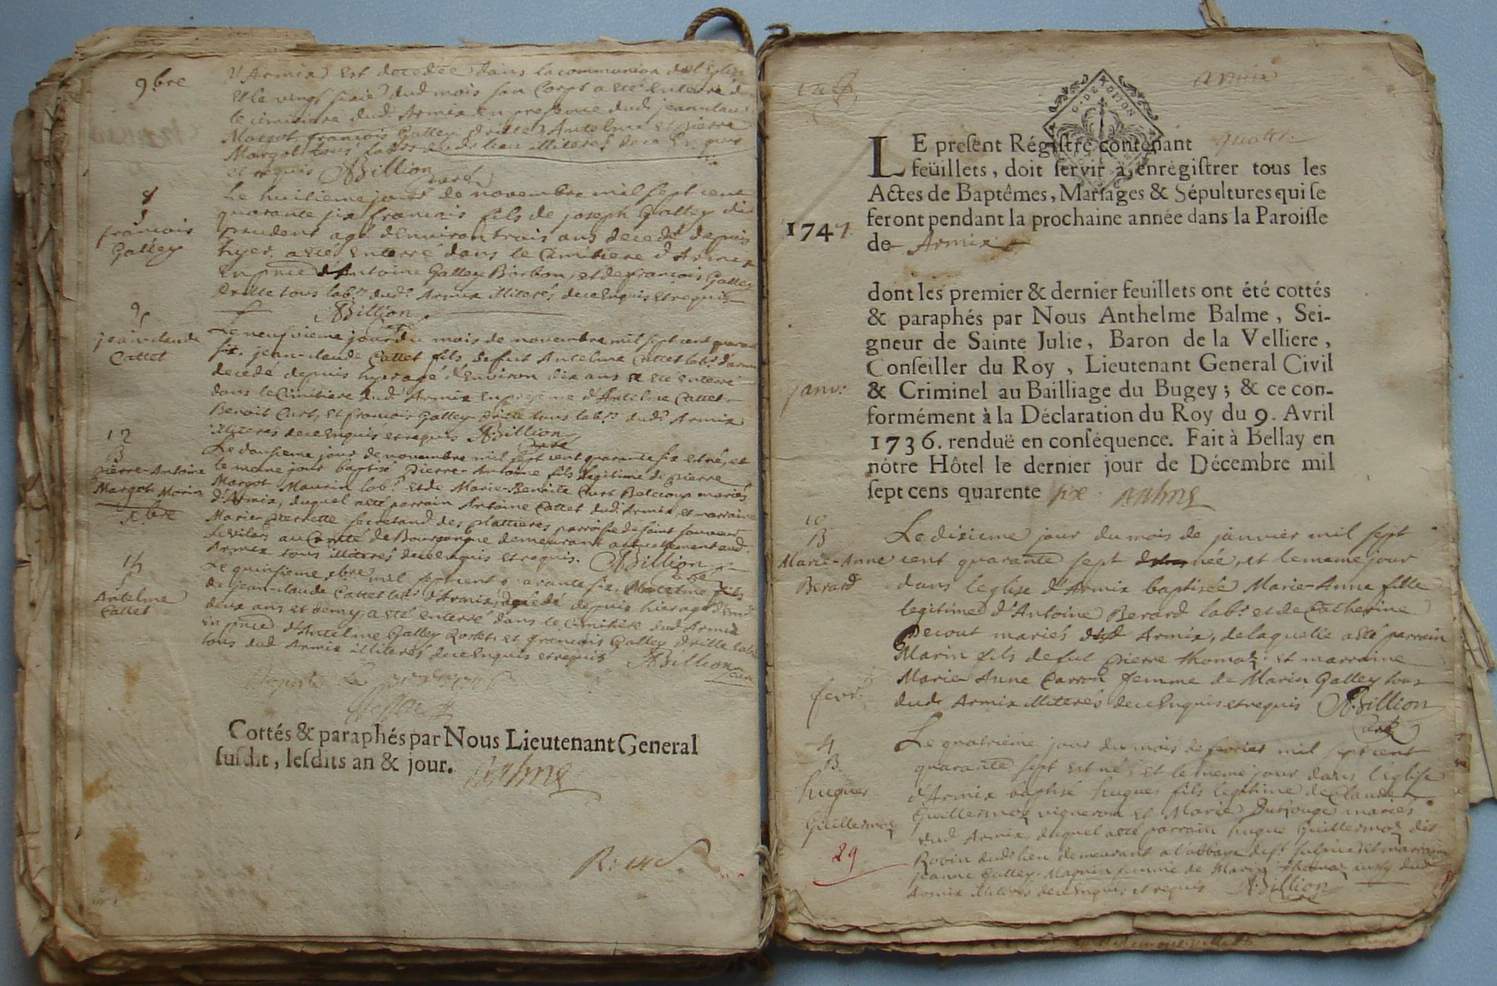 9bre
d'Armix est decedée dans la communion de l'Eglise
et le vingt dud mois son Corps a esté enterré
le cimitiere dud Armix en presence dud jeanclaude
Margot, françois Galley drille, Antelme et pierre
Margot tous lab.rs dud lieu illiterés de ce
et requis ABillion
curé
8
françois
Galley
Le huitieme jour de novembre mil sept cent
quarante six francois fils de joseph Galley dit
prudent agé d'environ trois ans decedé depuis
hyer, a esté enterré dans le Cimitiere d'Armix
En pnce d'Antoine Galley Barbon, et de françois Galley
Drille tous lab.rs dud.t Armix illiterés de ce enquis et requis
ABillion
curé
9
jeanclaude
Cattet
Le neufvieme jour du mois de novembre mil sept cent quarante
six. jean-claude Cattet fils de feu Antelme Cattet lab.r d'armix
decedé depuis hyer agé d'Environ dix ans a esté enterré
dans le Cimitiere dud Armix en presence d'Antelme Cattet
Benoit Curt, et françois Galley drille tous lab.rs dud.t Armix
illiteres de ce enquis et requis ABillion
curé
12
B
pierre-Antoine
Margot Morin
Le douzieme jour de novembre mil sept cent quarante six est né, et
le meme jour baptisé Pierre-Antoine fils legitime de pierre
Margot Maurin lab.r et de Marie-Benoite Curt Belcoup mariés
d'Armix, duquel a esté parrain Antoine Cattet dud Armix et marraine
Marie-Pierrette des plattieres parroisse de saint
au Comté de Bourgongne demeurant actuellement aud
Armix tous illiteres de ce enquis et requis. ABillion
curé
Xbre
15
Antelme
Cattet
Le quinsieme xbre mil sept cent quarante six Antelme fils
de jean-claude Cattet lab.r d'Armix, decedé depuis hier agé d'Env.
deux ans et demy a esté enterré dans le Cimitiere dud Armix
en pnce d'Antelme Galley et françois Galley drille lab.
tous dud Armix illiterés de ce enquis et requis ABillion
curé
Cottés & paraphés par Nous Lieutenant General
susdit, lesdits an & jour.
Armix
G. DE DIJON
LE present Régistre contenant quatre
feüillets, doit servir à enrégistrer tous les
Actes de Baptêmes, Mariages & Sépultures qui se
feront pendant la prochaine année dans la Paroisse
de Armix
1747
dont les premier & dernier feuillets ont été cottés
& paraphés par Nous Anthelme Balme, Sei-
gneur de Sainte Julie, Baron de la Velliere,
Conseiller du Roy, Lieutenant General Civil
& Criminel au Bailliage du Bugey; & ce con-
formément à la Déclaration du Roy du 9. Avril
1736. renduë en conséquence. Fait à Bellay en
nôtre Hôtel le dernier jour de Décembre mil
sept cens quarente six
janv.r
10
B
Marie-Anne
Berard
Le dixieme jour du mois de janvier mil sept
cent quarante sept est née, et le meme jour
dans l'eglise d'Armix baptisée Marie-Anne fille
legitime d'Antoine Berard lab.r et de Catherine
Decout mariés dud Armix, de laquelle a esté parrain
Marin fils de feu Pierre thomaz et marraine
Marie Anne Carron femme de Marin Galley tous
dud. Armix illiterés de ce enquis et requis ABillion
curé
fevr.
4
B.
hugues
Guillermoz
Le quatrieme jour du mois de fevrier mil sept cent
quarante sept est né, et le meme jour dans l'église
d'Armix baptisé hugues fils legitime de Claude
Guillermoz vigneron et Marie mariés
dud Armix, duquel a esté parrain hugue Guillermoz dit
Robin dud.t lieu demeurant a l'abbaye de s.t Sulpice et marraine
jeanne Galley femme de Marin thomaz dud
Armix illiteres de ce enquis et requis ABillion
curé
29